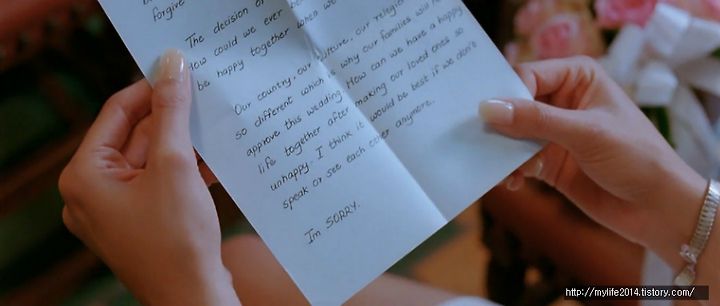 forgive
The decision of
How could we ever be
be happy together when we
Our country, our culture, our religion
so different which is why our families will
approve this wedding. How can we have a happy
life together after making our loved ones so
unhappy. I think it would be best if we don't
speak or see each other anymore.
Im SORRY.
http://mylife2014.tistory.com/